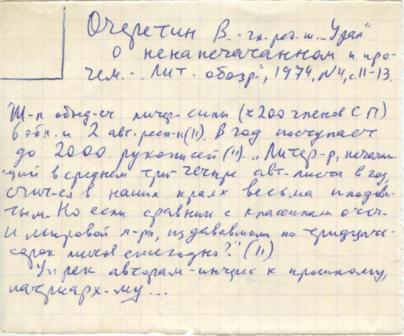 Очеретин В. - гл. ред. ж. „Урал"
О ненапечатанном и про-
чем. - Лит. обозр., 1974, №4, с. 11-13.
Ж-л объед-ет литер. силы (≈200 членов СП)
в обл. и 2 авт. респ-к (11). В год поступает
до 2000 рукописей (11). „Литер-р, печатаю-
щий в среднем три-четыре авт. листа в год,
считается в наших краях весьма плодови-
тым. Но если сравним с классиками отеч.
и мировой л-ры, издававшими по тридцать-
сорок листов ежегодно?" (11)
Упрек авторам - интерес к прошлому,
патриарх-му...